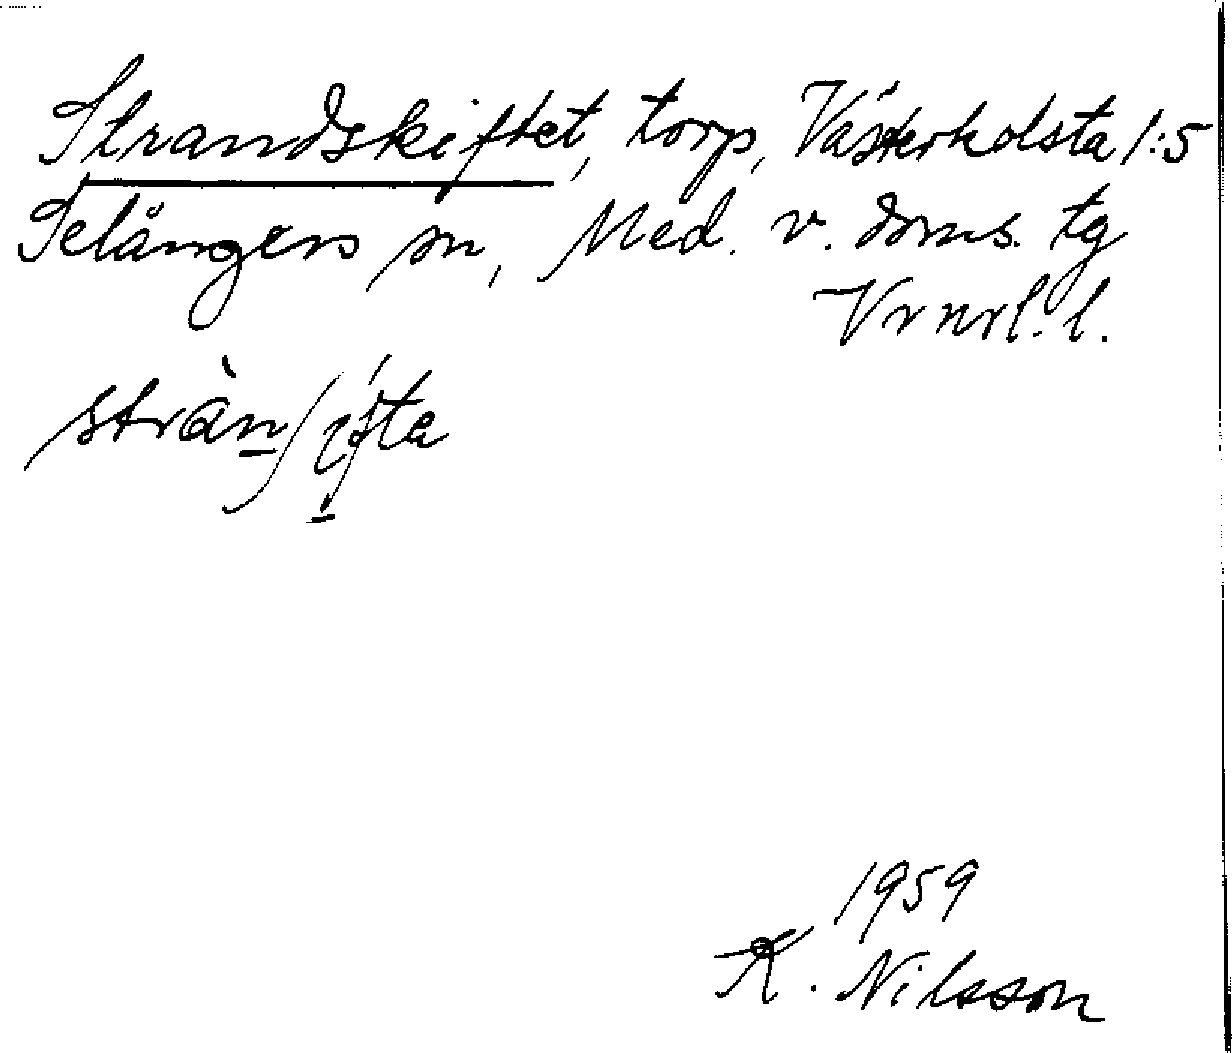 Strandskiftet, torp, Västerkolsta 1:5
Selångers sn, Med. v. doms. tg
Vrnrl. l.
1959
K. Nilsson